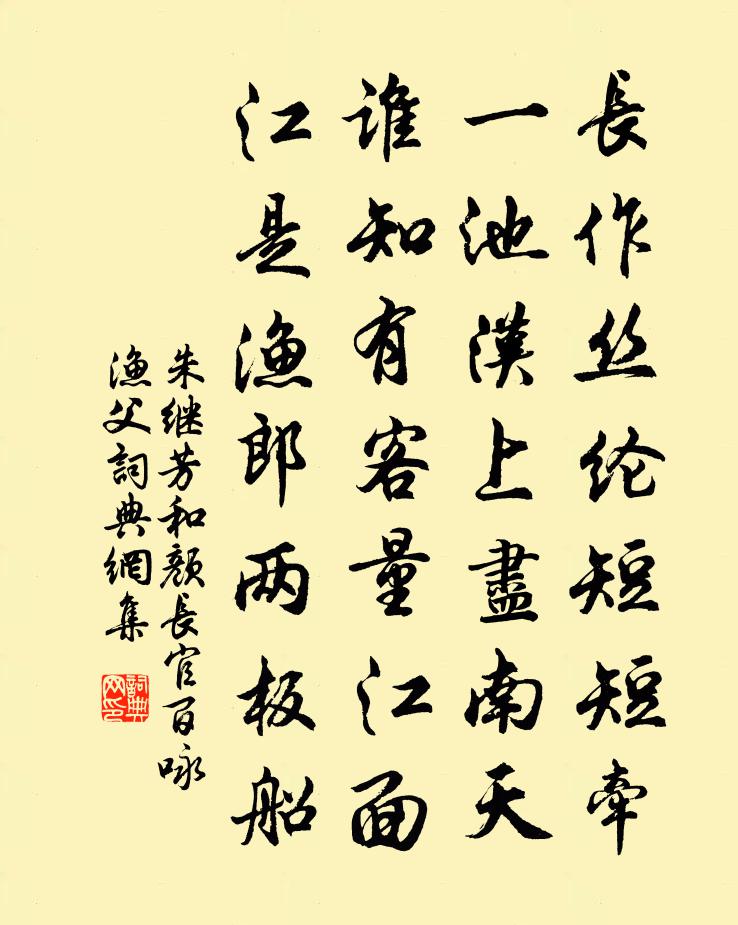 長作丝纶短短牵
一池漢上盡南天
谁知有客量江面
江是渔郎两板船
朱继芳和颜長官百咏
渔父詞典網集
詞典
网印